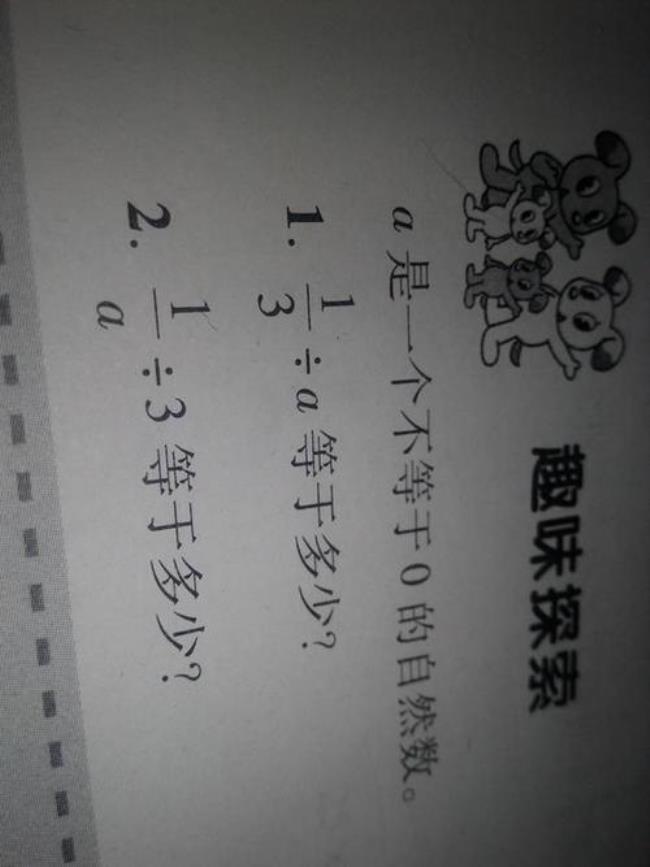 趣味探索
a 是一个不等于 0 的自然数。
1. 1/3 ÷ a 等于多少?
2. 1/a ÷ 3 等于多少?